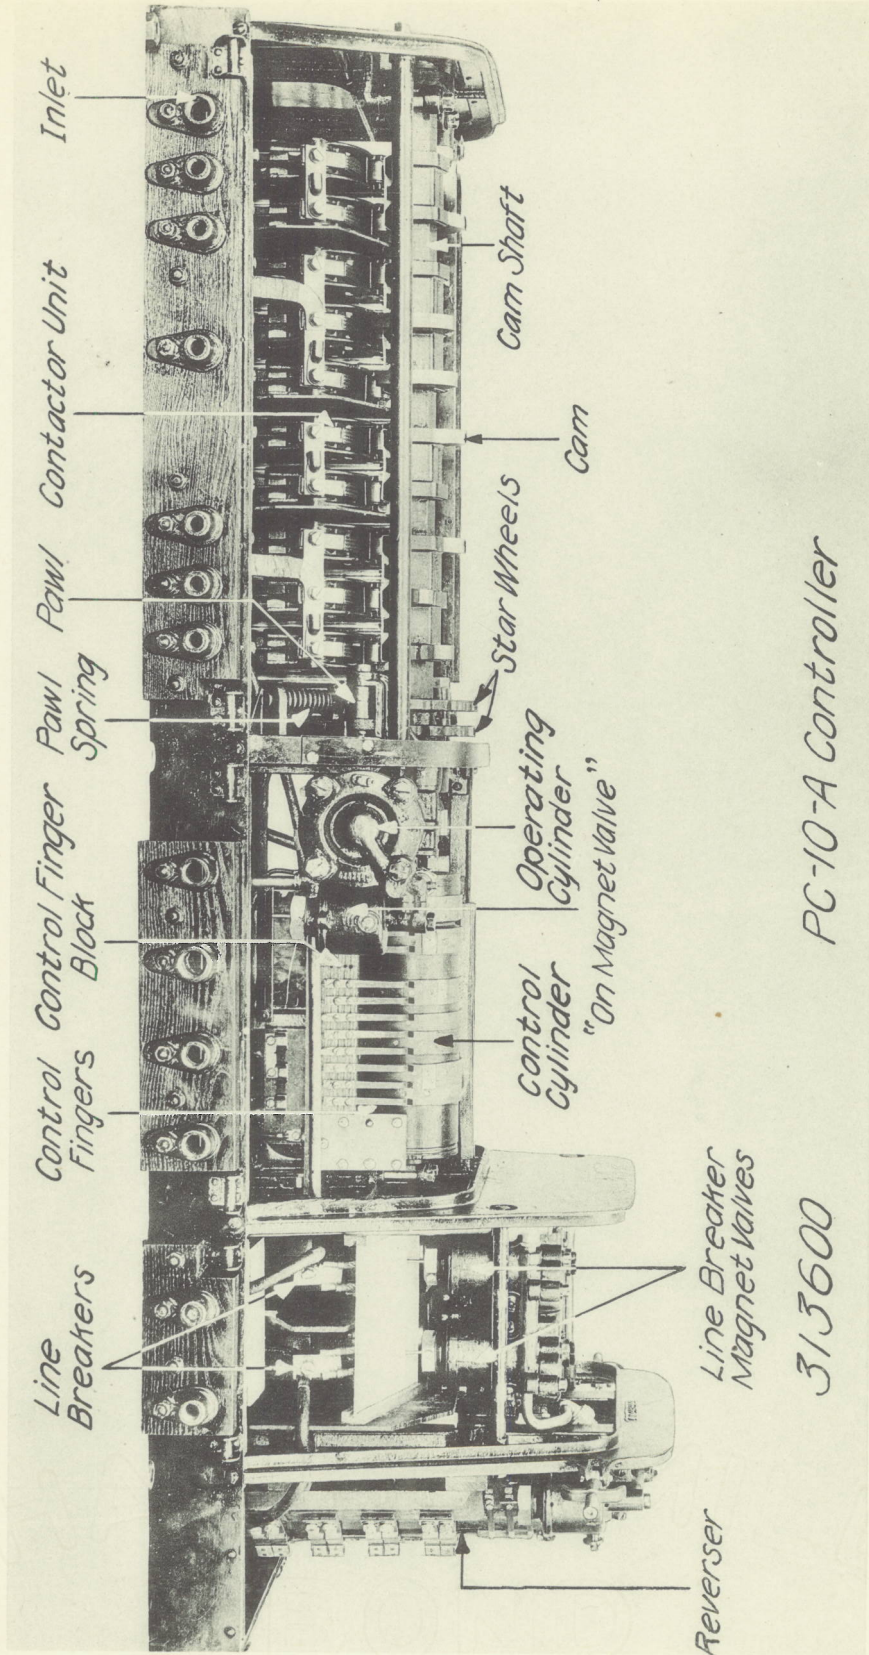 Line
Breakers
Control
Fingers
Control Finger
Block
Pawl
Spring
Pawl
Contactor Unit
Inlet
Reverser
Line Breaker
Magnet Valves
Control
Cylinder
"On Magnet Valve"
Operating
Cylinder
Star Wheels
Cam
Cam Shaft
313600
PC-10-A Controller